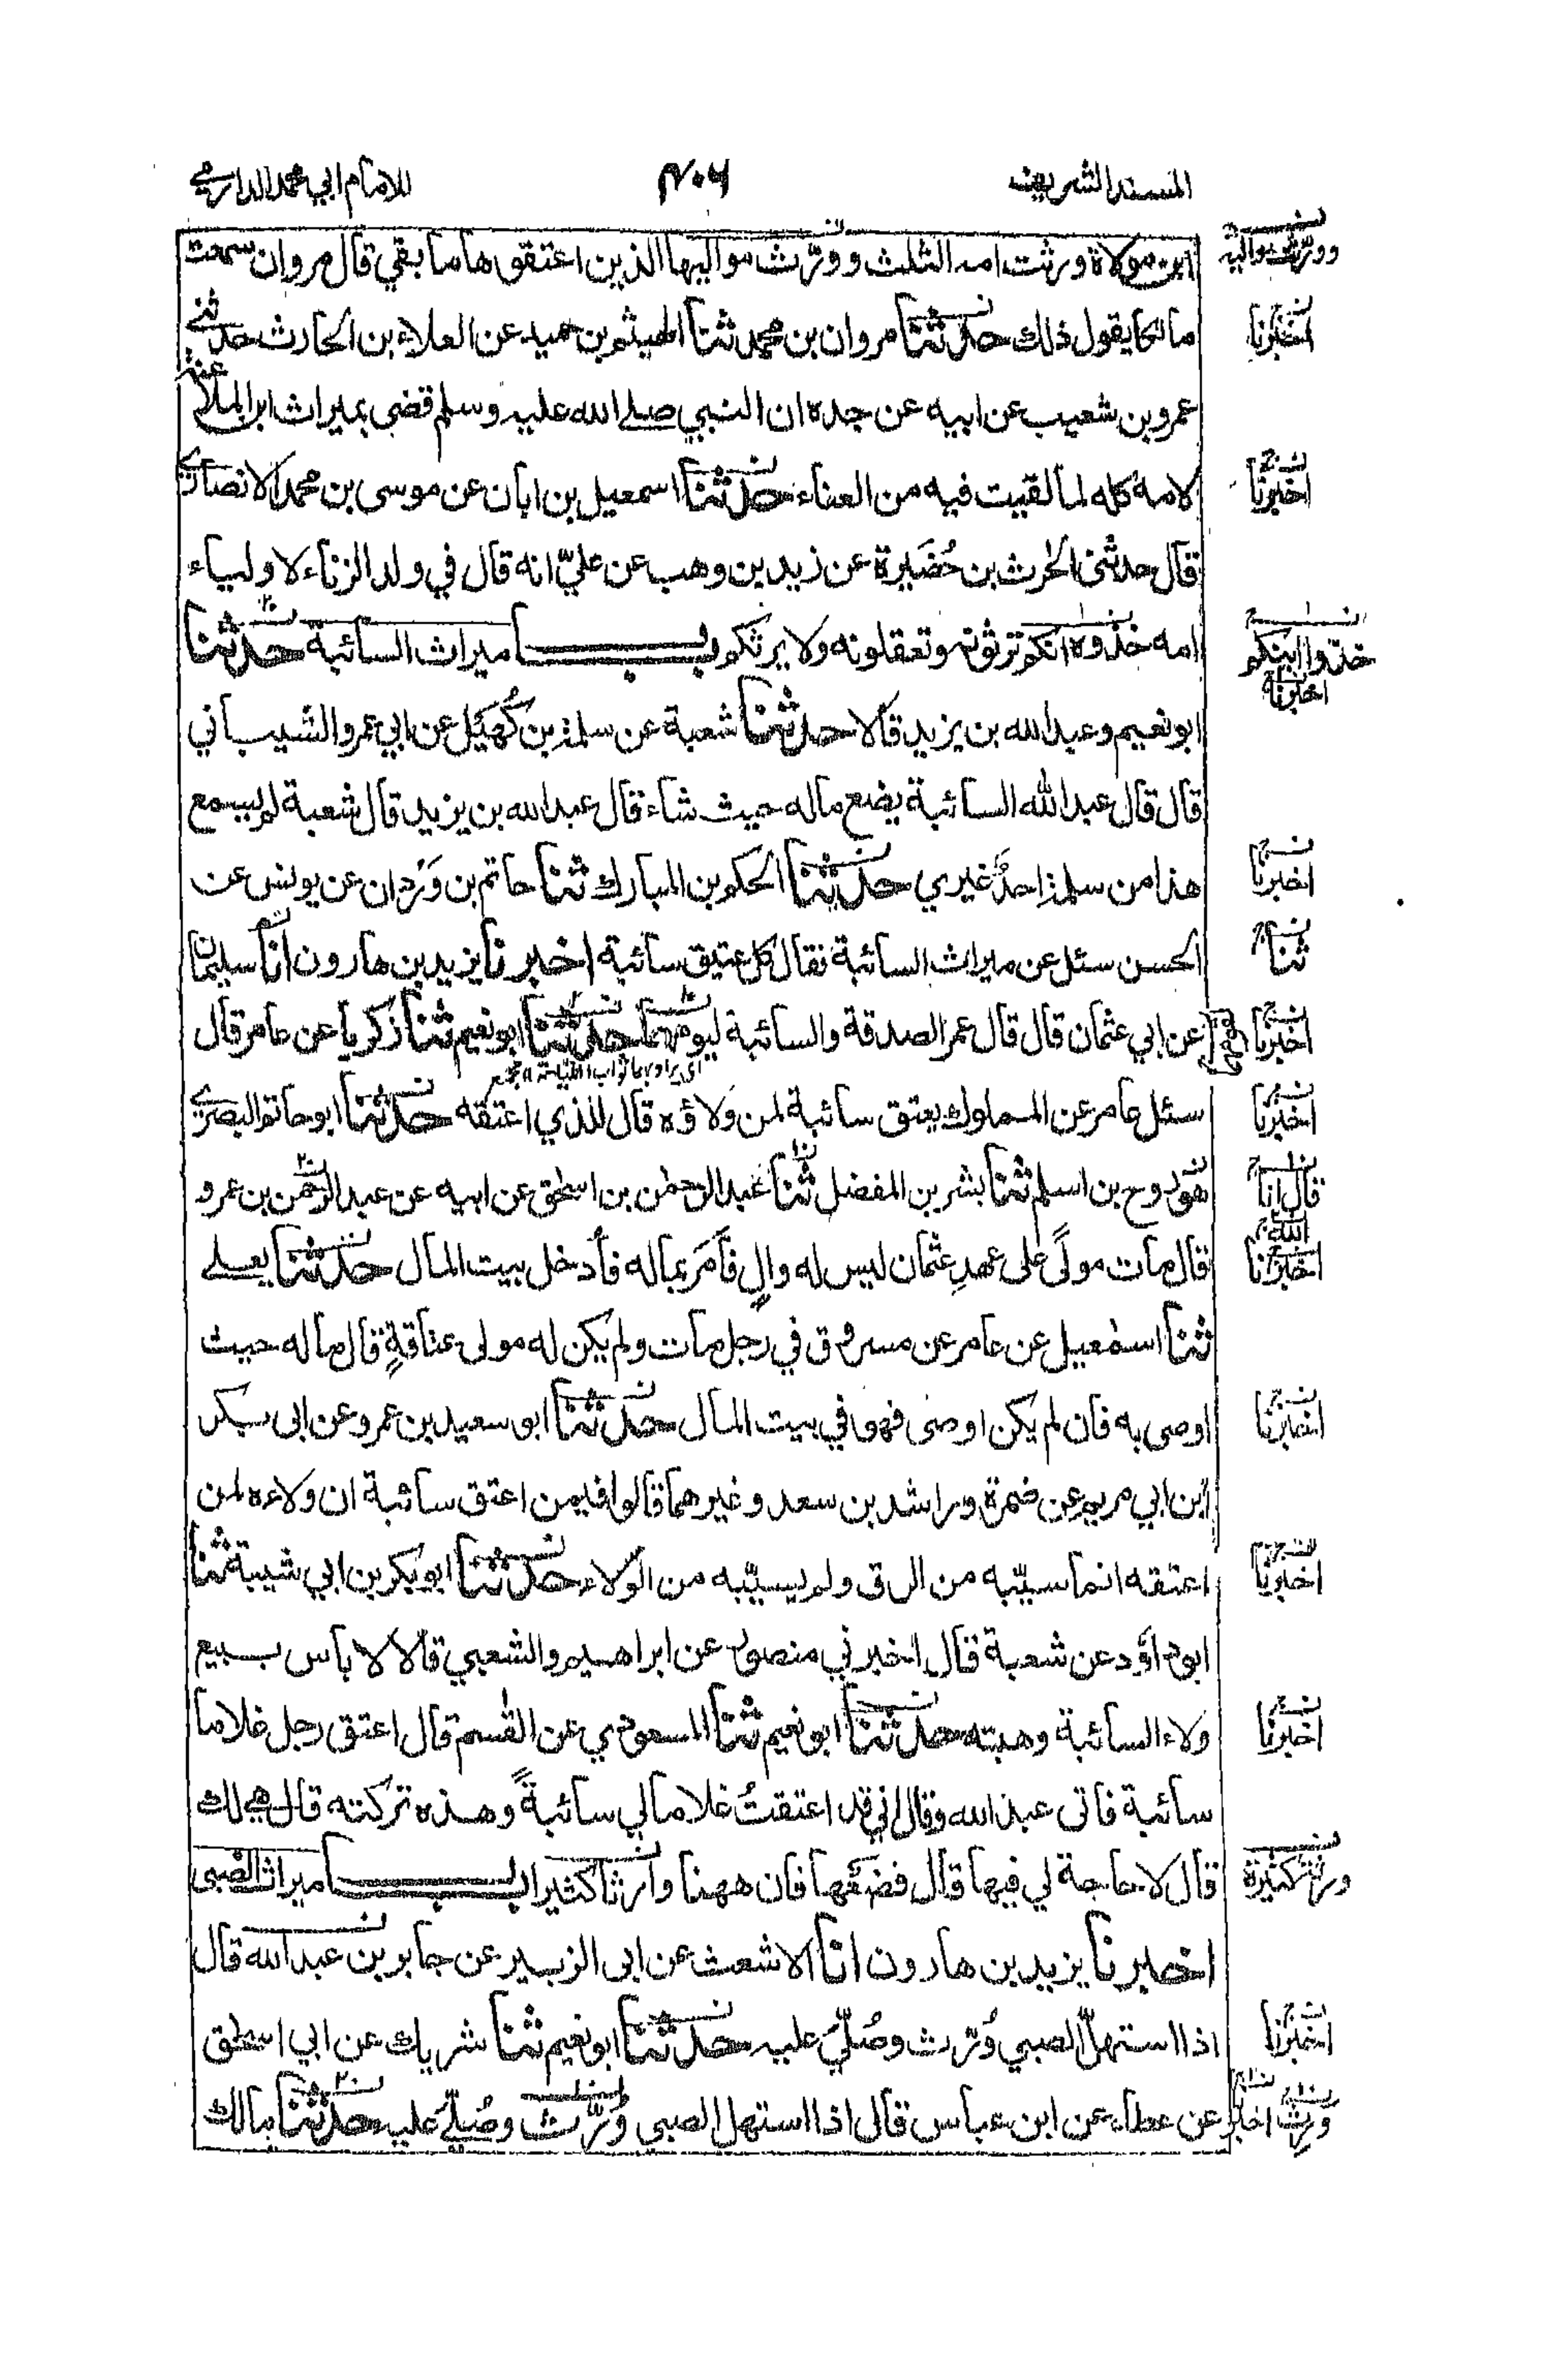 المسند الشريف
٤٠٦
للامام ابي محمد الدارمي
ابن مولاة ورثت امه الثلث وورّث مواليها الذين اعتقوها ما بقي قال مروان سمعت
مالكا يقول ذلك حدثنا مروان بن محمد ثنا الهيثم بن حميد عن العلاء بن الحارث حدثني
عمرو بن شعيب عن ابيه عن جده ان النبي صلے الله عليه وسلم قضى بميراث ابن الملاعنة
لامه كله لما لقيت فيه من العناء حدثنا اسمعيل بن ابان عن موسى بن محمد الانصاري
قال حدثنى الحرث بن حُضَيرة عن زيد بن وهب عن عليّ انه قال في ولد الزناء لاولياء
امه خذوه انكم ترثونه وتعقلونه ولا يرثكم باب ميراث السائبة حدثنا
ابو نعيم وعبد الله بن يزيد قالا حدثنا شعبة عن سلمة بن كُهَيل عن ابي عمرو الشيباني
قال قال عبد الله السائبة يضع ماله حيث شاء قال عبد الله بن يزيد قال شعبة لم يسمع
هذا من سلمة احدٌ غيري حدثنا الحكم بن المبارك ثنا حاتم بن وَرْدان عن يونس عن
الحسن سئل عن ميراث السائبة فقال كل عتيق سائبة اخبرنا يزيد بن هارون انا سليمان
عن ابي عثمان قال قال عمر الصدقة والسائبة ليومهما حدثنا ابو نعيم ثنا زكريا عن عامر قال
سئل عامر عن المملوك يعتق سائبة لمن ولاؤه قال للذي اعتقه حدثنا ابو حاتم البصري
هو روح بن اسلم ثنا بشر بن المفضل ثنا عبد الرحمن بن اسحٰق عن ابيه عن عبد الرحمن بن عمرو
قال مات مولًى على عهدِ عثمان ليس له والٍ فأَمَر بماله فأُدخل بيت المال حدثنا يعلے
ثنا اسمٰعيل عن عامر عن مسروق في رجل مات ولم يكن له مولى عتاقةٍ قال ماله حيث
اوصى به فان لم يكن اوصى فهو في بيت المال حدثنا ابو سعيد بن عمرو عن ابى بكر
ابن ابي مريم عن ضمرة وراشد بن سعد وغيرهما قالوا فيمن اعتق سائبة ان ولاءه لمن
اعتقه انما سيّبه من الرق ولم يسيّبه من الولاء حدثنا ابو بكر بن ابي شيبة ثنا
ابو داؤد عن شعبة قال اخبرني منصور عن ابراهيم والشعبي قالا لا باس ببيع
ولاء السائبة وهبته حدثنا ابو نعيم ثنا المسعودي عن القٰسم قال اعتق رجل غلاما
سائبة فاتى عبد الله وقال اني قد اعتقتُ غلاما لي سائبةً وهذه تركته قال هي لك
قال لا حاجة لي فيها قال فضعها فان ههنا وارثا كثيرا باب ميراث الصبى
اخبرنا يزيد بن هارون انا الاشعث عن ابى الزبير عن جابر بن عبد الله قال
اذا استهلّ الصبي وُرّث وصُلّيَ عليه حدثنا ابو نعيم ثنا شريك عن ابي اسحٰق
عن عطاء عن ابن عباس قال اذا استهل الصبى وُرّث وصُلّے عليه حدثنا مالك
وورّث مواليه
اخبرنا
اخبرنا
خذوا ابنكم
اخبرنا
اخبرنا
ثنا
اخبرنا
اخبرنا
قال انا
الله
اخبرنا
اخبرنا
اخبرنا
اخبرنا
ورثة كثيرة
اخبرنا
ورث